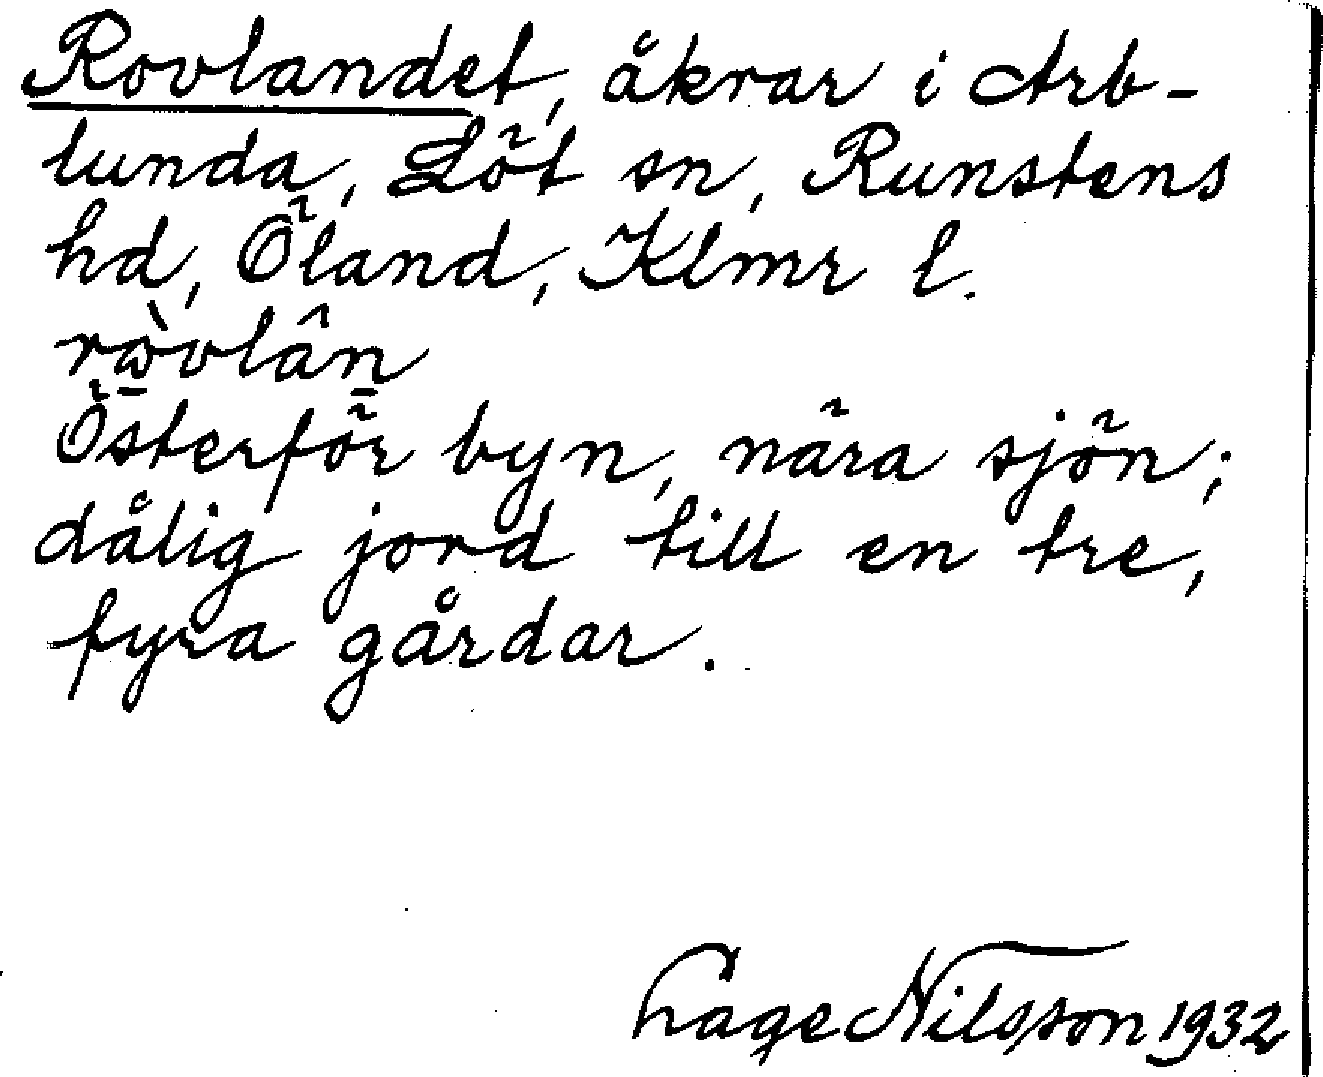 Rovlandet, åkrar i Arb-
lunda, Löt sn, Runstens
hd, Öland, Klmr l.
rὼ̠vlân̠
Österför byn, nära sjön;
dålig jord till en tre,
fyra gårdar.
Hage Nilsson 1932